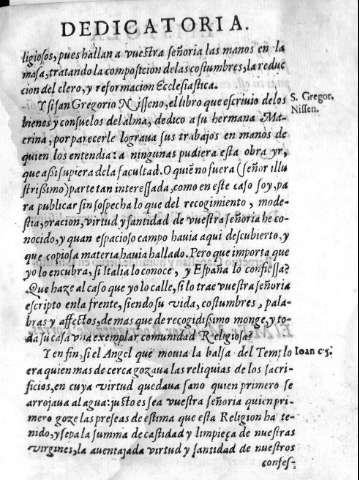 DEDICATORIA.
ligiosos, pues hallan a vuestra señoria las manos en la
masa, tratando la composicion de las costumbres, la reduc
cion del clero, y reformacion Ecclesiastica.
Y si san Gregorio Nisseno, el libro que escriuio de los
S. Gregor.
Nissen.
bienes y consuelos del alma, dedico a su hermana Ma-
crina, por parecerle lograua sus trabajos en manos de
quien los entendia: a ningunas pudiera esta obra yr,
que assi supiera de la facultad. O quiẽ no fuera (señor illu
strissimo) parte tan interessada, como en este caso soy, pa
ra publicar sin sospecha lo que del recogimiento, modes-
tia, oracion, virtud y santidad de vuestra señoria he co-
nocido, y quan espacioso campo hauia aqui descubierto, y
que copiosa materia hauia hallado. Pero que importa que
yo lo encubra, si Italia lo conoce, y España lo confiessa?
Que haze al caso que yo lo calle, si lo trae vuestra señoria
escripto en la frente, siendo su vida, costumbres, pala-
bras y affectos, de mas que de recogidissimo monge, y to-
da su casa vna exemplar comunidad Religiosa?
Y en fin, si el Angel que mouia la balsa del Templo
Ioan c5.
era quien mas de cerca gozaua las reliquias de los sacri-
ficios, en cuya virtud quedaua sano quien primero se
arrojaua al agua: justo es sea vuestra señoria quien pri-
mero goze las preseas de estima que esta Religion ha te-
nido, y sepa la summa de castidad y limpieça de nuestras
virgines, la auentajada virtud y santidad de nuestros
confes-